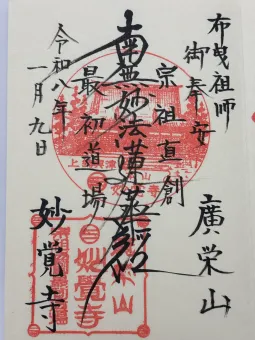 布曳祖師
御奉安
廣栄山
宗祖直創
南無妙法蓮華經
最初道場
令和八年
一月九日
妙覚寺
妙覺寺